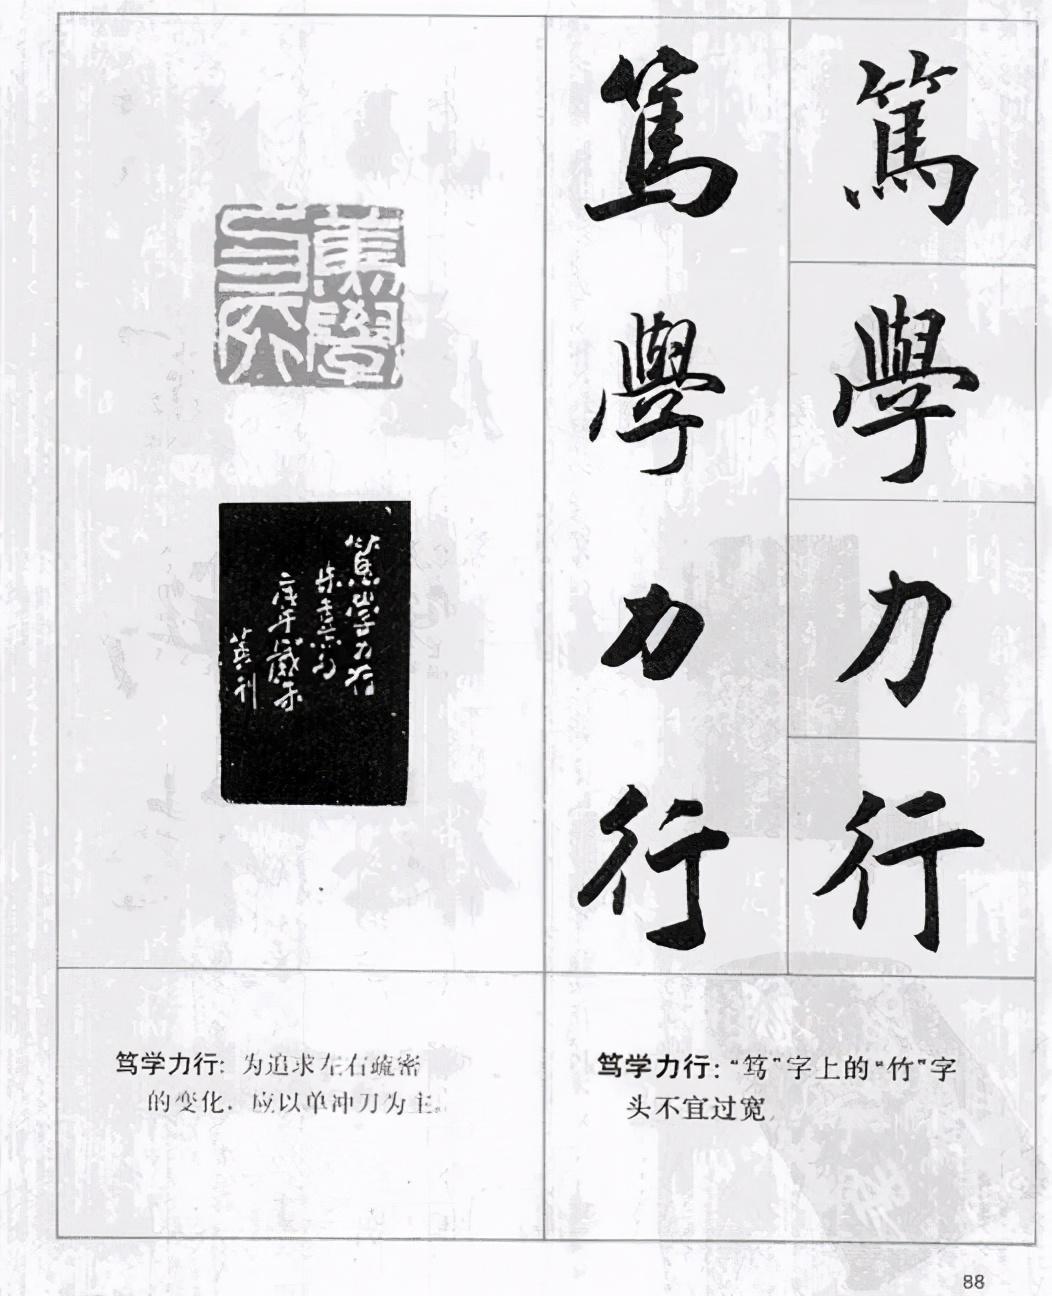 篤
學
力
行
篤
學
力
行
篤學
力行
笃学力行
庚午歲末
刊
笃学力行：为追求左右疏密
的变化，应以单冲刀为主。
笃学力行：“笃”字上的“竹”字
头不宜过宽。
88